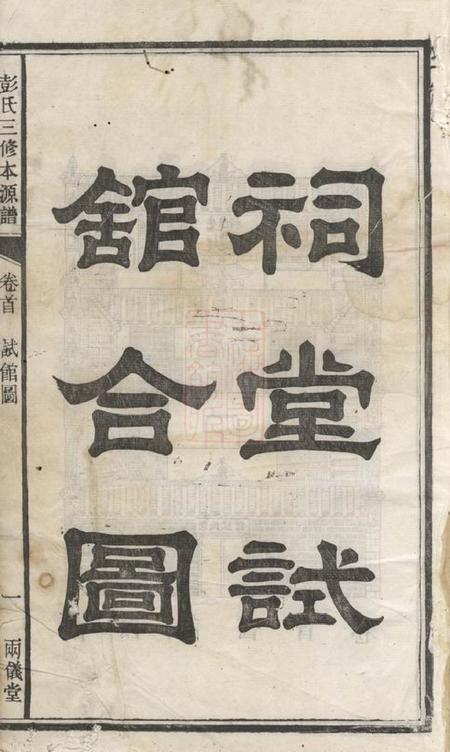 祠堂試
舘合圖
彭氏三修本源譜
卷首
試館圖
一
兩儀堂